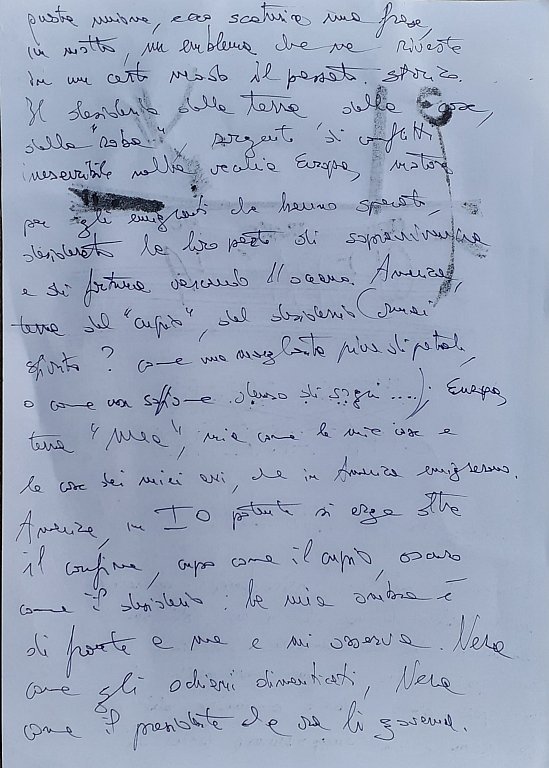 questa unione, ecco scaturire una frase,
un motto, un emblema che ne riveste
in un certo modo il passato storico.
Il desiderio della terra, delle cose,
della "roba", sorgente di conflitti
inesauribile nella vecchia Europa, motore
per gli emigranti che hanno sperato,
desiderato la loro parte di sopravvivenza
e di fortuna varcando l'oceano. America,
terra del "cupio", del desiderio (ormai
sfinito? come una margherita priva di petali,
o come un soffione denso di sogni ....); Europa,
terra "Mea", mia come le mie cose e
le cose dei miei avi, che in America emigrarono.
America, un IO potente si erge oltre
il confine, cupo come il cupio, oscuro
come il desiderio: la mia ombra è
di fronte a me e mi osserva. Nera
come gli schiavi dimenticati, Nera
come il presidente che ora li governa.